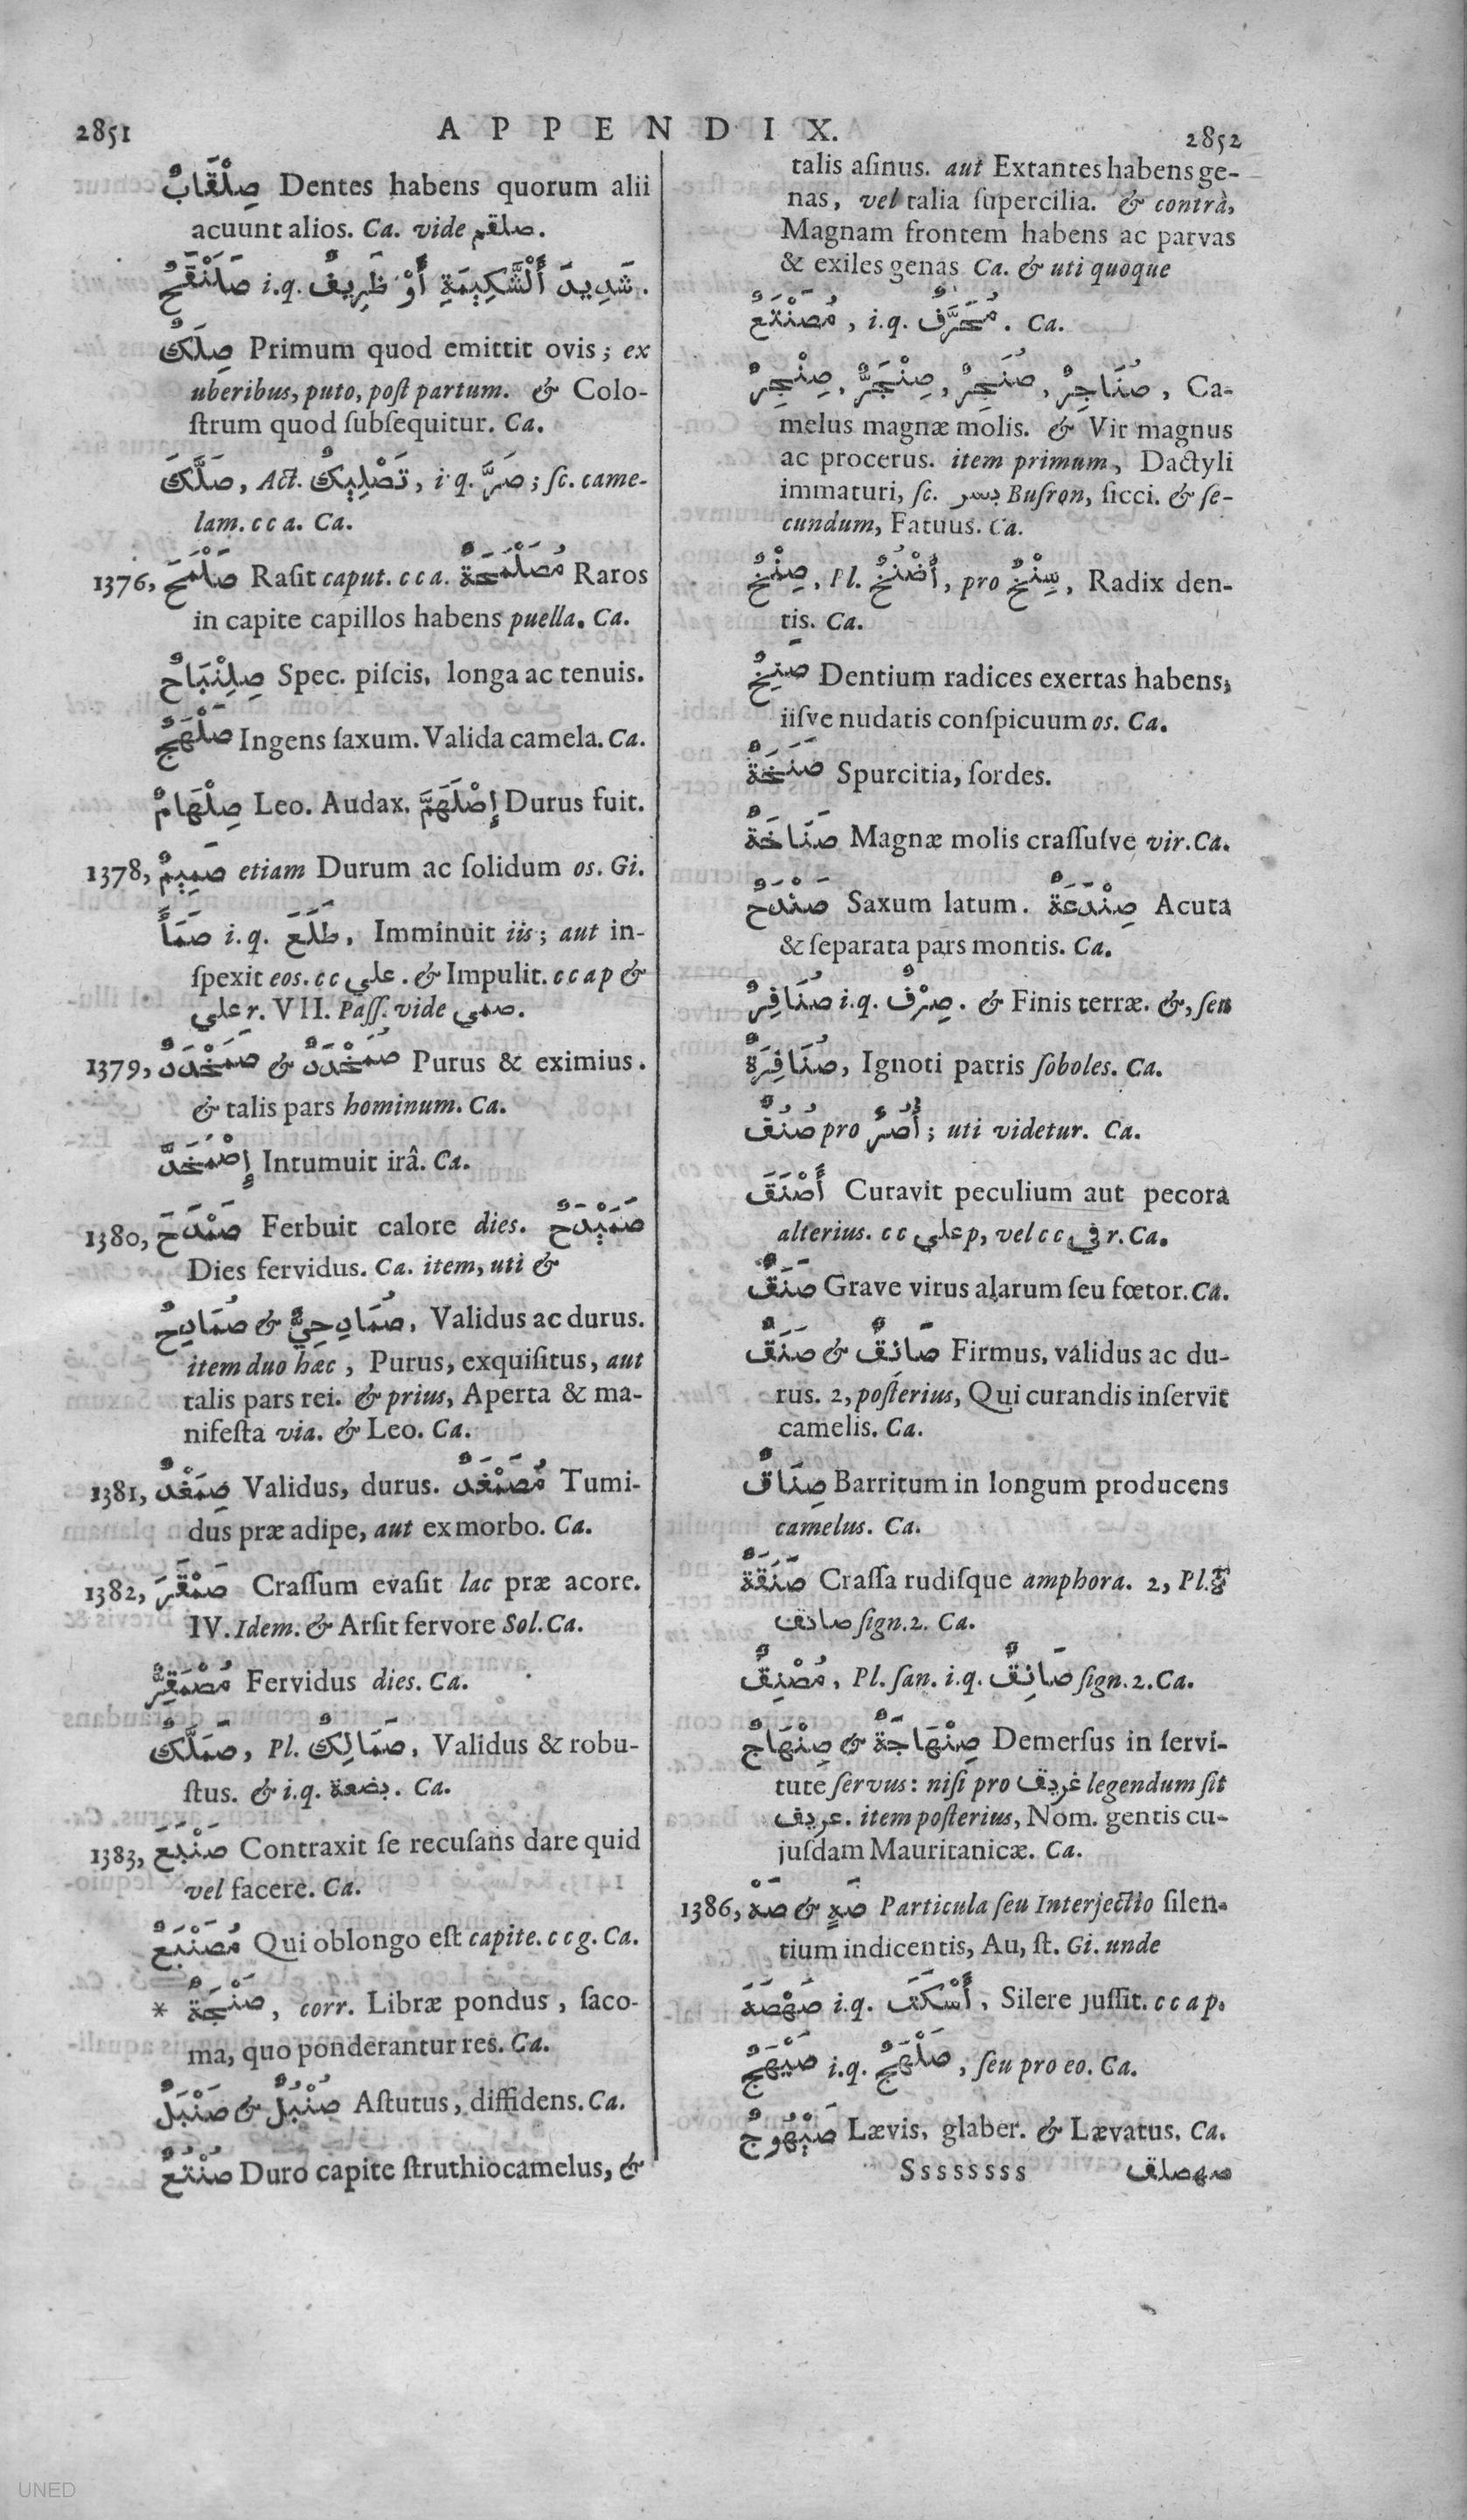 2851
APPENDIX.
2852
صِلْقَابٌ Dentes habens quorum alii
acuunt alios. Ca. vide صلقم.
صَلَنْقَحٌ i.q. شَدِيدَ ٱلْشَّكِيمَةِ أَوْ ظَرِيفٌ.
صِلَكٌ Primum quod emittit ovis; ex
uberibus, puto, poſt partum. & Colo-
ſtrum quod ſubſequitur. Ca.
صَلَّكَ, Act. تَصْلِيكٌ, i.q. صَرَّ; ſc. came-
lam. c c a. Ca.
1376, صَلْمَحَ Raſit caput. c c a. مُصَلْمَحَةٌ Raros
in capite capillos habens puella. Ca.
صِلِنْبَاحٌ Spec. piſcis, longa ac tenuis.
صَلْهَجٌ Ingens ſaxum. Valida camela. Ca.
صِلْهَامٌ Leo. Audax. إِصْلَهَمَّ Durus fuit.
1378, صَمِيمٌ etiam Durum ac ſolidum os. Gi.
صَمَأَ i.q. طَلَعَ, Imminuit iis; aut in-
ſpexit eos. c c علي. & Impulit. c c a p &
علي r. VII. Paſſ. vide صمي.
1379, صَمَخْدَدٌ & صَمَخْدَدٌ Purus & eximius.
& talis pars hominum. Ca.
إِصْمَخَدَّ Intumuit irâ. Ca.
1380, صَمْدَحَ Ferbuit calore dies. صَمَيْدَحٌ
Dies fervidus. Ca. item, uti &
صُمَادِحِيٌّ & صُمَادِحٌ, Validus ac durus.
item duo hæc, Purus, exquiſitus, aut
talis pars rei. & prius, Aperta & ma-
nifeſta via. & Leo. Ca.
1381, صِمَغْدٌ Validus, durus. مُصَمْغَدٌ Tumi-
dus præ adipe, aut ex morbo. Ca.
1382, صَمْقَرَ Craſſum evaſit lac præ acore.
IV. Idem. & Arſit fervore Sol. Ca.
مُصْمَقِرٌّ Fervidus dies. Ca.
صَمَلَّكٌ, Pl. صَمَالِكٌ, Validus & robu-
ſtus. & i.q. بضعة. Ca.
1383, صَنْبَعَ Contraxit ſe recuſans dare quid
vel facere. Ca.
مُصَنْبَعٌ Qui oblongo eſt capite. c c g. Ca.
* صَنْجَةٌ, corr. Libræ pondus, ſaco-
ma, quo ponderantur res. Ca.
صُنْبُلٌ & صَنْبَلٌ Aſtutus, diffidens. Ca.
صُنْتُعٌ Duro capite ſtruthiocamelus, &
talis aſinus. aut Extantes habens ge-
nas, vel talia ſupercilia. & contrà,
Magnam frontem habens ac parvas
& exiles genas Ca. & uti quoque
مُصَنْتَعٌ, i.q. مُحَرَّفٌ. Ca.
صُنَاجِرٌ, صُنَجِرٌ, صِنْجَرٌّ, صِنْجِرٌ, Ca-
melus magnæ molis. & Vir magnus
ac procerus. item primum, Dactyli
immaturi, ſc. بسر Buſron, ſicci. & ſe-
cundum, Fatuus. Ca.
صِنْخٌ, Pl. أَصْنُخٌ, pro سِنْخٌ, Radix den-
tis. Ca.
صَنِخٌ Dentium radices exertas habens,
iiſve nudatis conſpicuum os. Ca.
صَنَخَةٌ Spurcitia, ſordes.
صَنَّاخَةٌ Magnæ molis craſſuſve vir. Ca.
صَنْدَحٌ Saxum latum. صِنْدَعَةٌ Acuta
& ſeparata pars montis. Ca.
صُنَافِرٌ i.q. صِرْفٌ. & Finis terræ. &, ſeu
صُنَافِرَةٌ, Ignoti patris ſoboles. Ca.
صُنُقٌ pro أُصُرٌ; uti videtur. Ca.
أَصْنَقَ Curavit peculium aut pecora
alterius. c c علي p, vel c c في r. Ca.
صَنَقٌ Grave virus alarum ſeu fœtor. Ca.
صَنَقٌ & صَانِقٌ Firmus, validus ac du-
rus. 2, poſterius, Qui curandis inſervit
camelis. Ca.
صِنَاقٌ Barritum in longum producens
camelus. Ca.
صَنَقَةٌ Craſſa rudiſque amphora. 2, Pl.
صانق ſign. 2. Ca.
مُصْنِقٌ, Pl. ſan. i.q. صَانِقٌ ſign. 2. Ca.
صِنْهَاجٌ & صِنْهَاجَةٌ Demerſus in ſervi-
tute ſervus: niſi pro غريق legendum ſit
عريق. item poſterius, Nom. gentis cu-
juſdam Mauritanicæ. Ca.
1386, صَهْ & صَهٍ Particula ſeu Interjectio ſilen-
tium indicentis, Au, ſt. Gi. unde
صَهْصَهَ i.q. أَسْكَتَ, Silere juſſit. c c a p.
صَيْهَجٌ i.q. صَلْهَجٌ, ſeu pro eo. Ca.
صَيْهُوجٌ Lævis, glaber. & Lævatus. Ca.
Ssssssss صهصلق
UNED